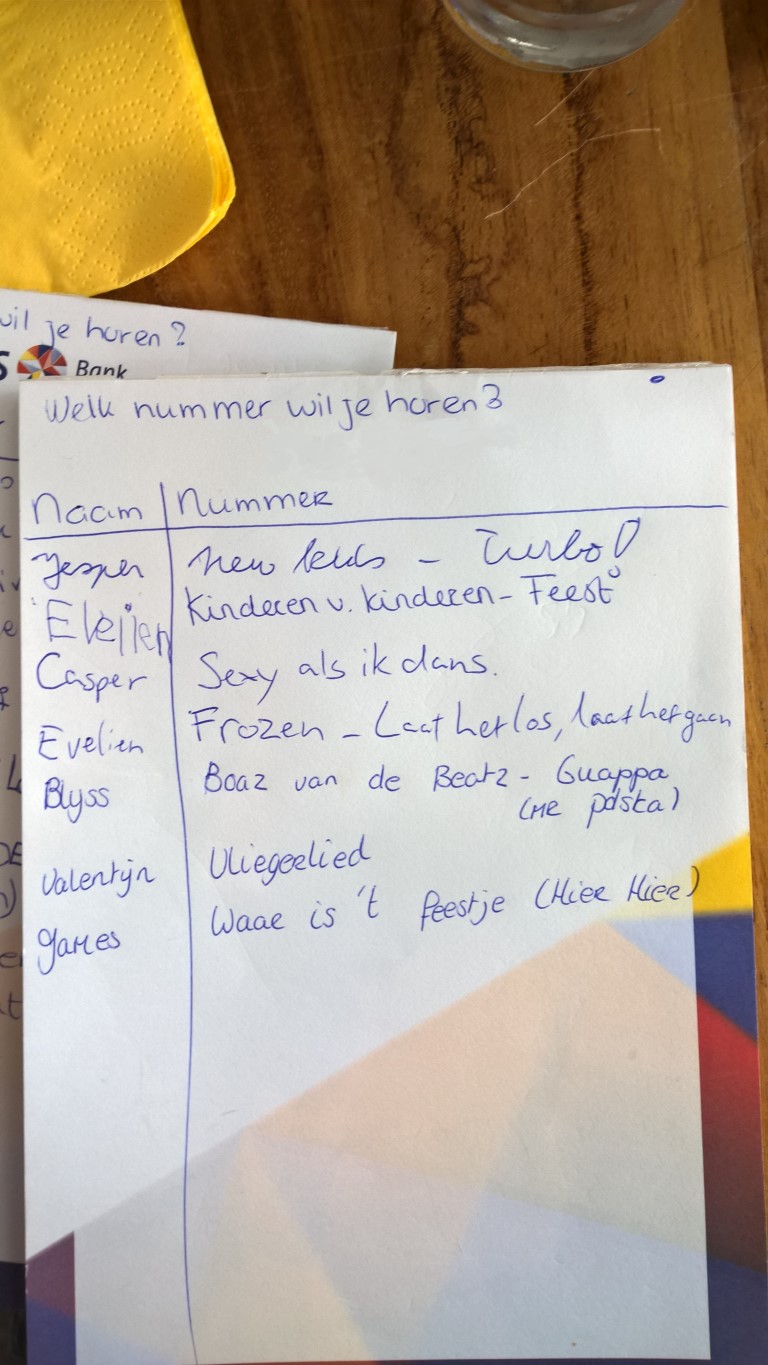 wil je horen?
S Bank
Welk nummer wil je horen?
Naam Nummer
Jesper New kids - Turbo!
Eleijen Kinderen v. kinderen - Feest
Casper Sexy als ik dans.
Evelien Frozen - Laat het los, laat het gaan
Blyss Boaz van de Beatz - Guappa
(ME pdska)
Valentijn Vliegerlied
James Waar is 't feestje (Hier Hier)